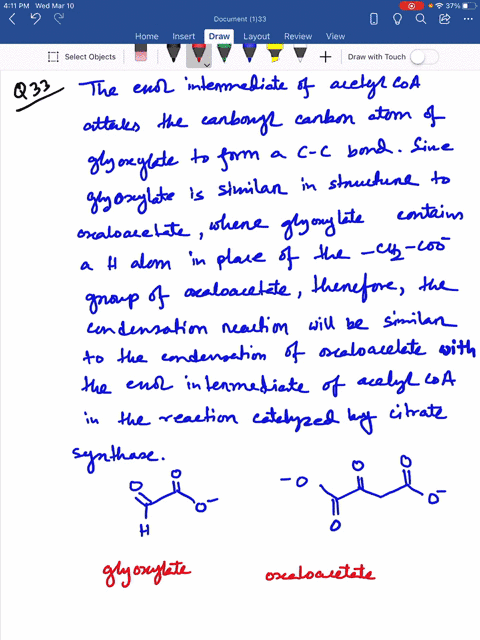 4:11 PM Wed Mar 10
37%
Document (1)33
Home Insert Draw Layout Review View
Select Objects
Draw with Touch
Q33
The enol intermediate of acetyl CoA
attacks the carbonyl carbon atom of
glyoxylate to form a C-C bond. Since
glyoxylate is similar in structure to
oxaloacetate, where glyoxylate contains
a H atom in place of the -CH2-COO-
group of oxaloacetate, therefore, the
condensation reaction will be similar
to the condensation of oxaloacetate with
the enol intermediate of acetyl CoA
in the reaction catalyzed by citrate
synthase.
O O O-
H
-O O O O-
O
glyoxylate oxaloacetate